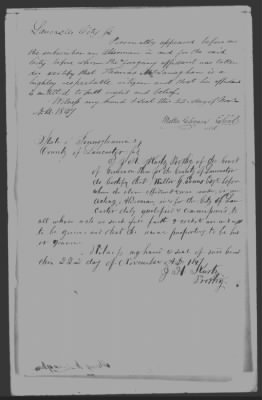 Lancaster City ss
Personally appeared before me
the subscriber an Alderman in and for the said
City before whom the foregoing affidavit was taken
do certify that Thomas McDonaghan is a
highly respectable citizen and that his affidavit
is entitled to full faith and belief.
Witness my hand & seal this 22 day of Nov
A.D. 1847
Walter G. Evans
State of Pennsylvania
County of Lancaster ss
I J. H. Kurtz Prothy of the Court
of Common Pleas for the County of Lancaster
do certify that Walter G. Evans Esqr before
whom the above affidavit was made, is an
acting Alderman in & for the City of Lan
caster duly qualified & commissioned to
all whose acts as such full faith & credit are and ought
to be given and that the name purporting to be his
is genuine
Witness my hand & seal of said Court
this 22d day of November A.D. 1847
J H Kurtz
Prothy